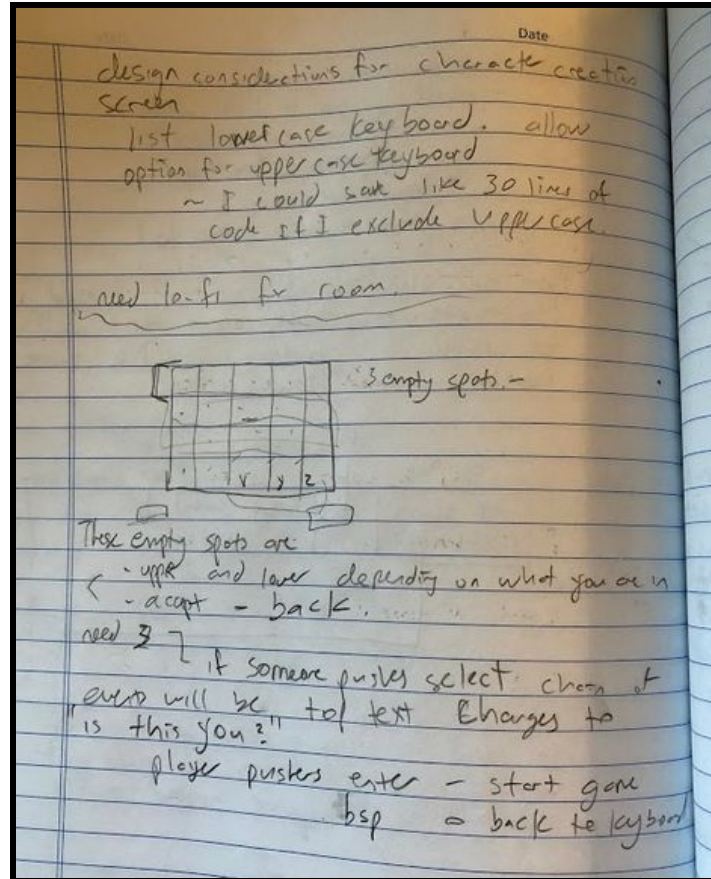 Date
design considerations for character creation
screen
list lowercase keyboard. allow
option for upper case keyboard
~ I could save like 30 lines of
code if I exclude uppercase.
need lo-fi for room.
3 empty spots. -
x y z
These empty spots are
- upper and lower depending on what you are in
- accept - back.
need 3
if someone pushes select chain of
events will be top text changes to
"is this you?"
player pushes enter - start game
bsp - back to keyboard